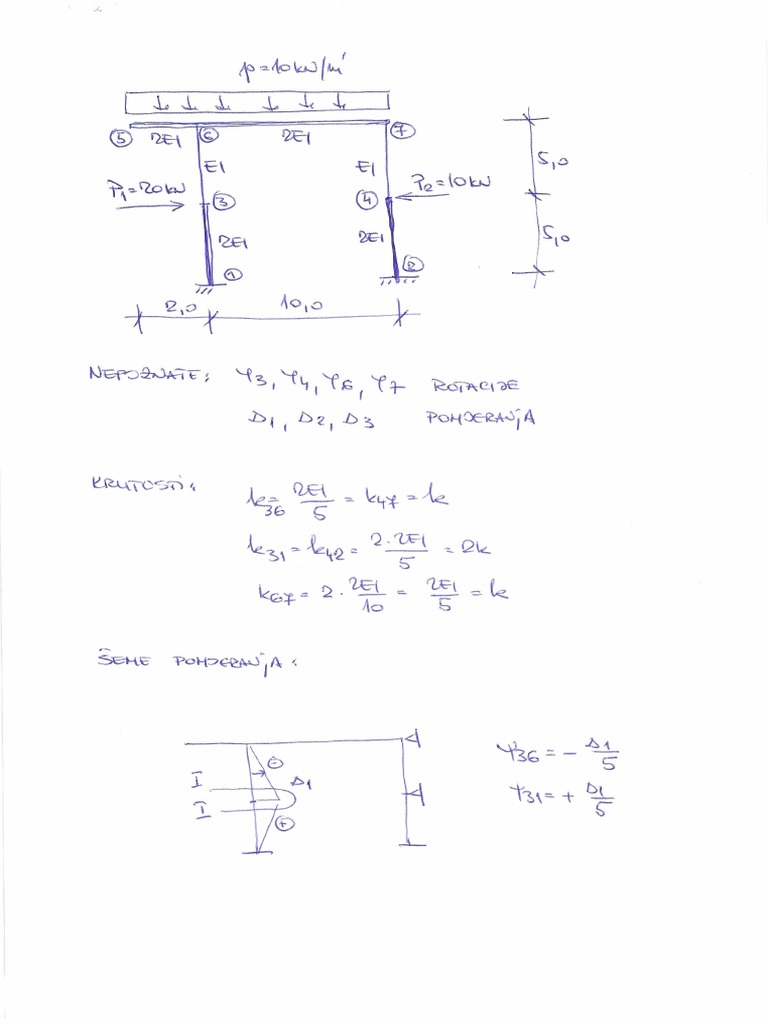 p=10kN/m'
5 2EI 6 2EI 7
EI EI 5,0
P1=20kN 3 4 P2=10kN
2EI 2EI 5,0
1 2
2,0 10,0
NEPOZNATE: φ3, φ4, φ6, φ7 ROTACIJE
Δ1, Δ2, Δ3 POMJERANJA
KRUTOSTI: k36 = 2EI/5 = k47 = k
k31 = k42 = 2·2EI/5 = 2k
k67 = 2·2EI/10 = 2EI/5 = k
ŠEME POMJERANJA:
I ⊖ Δ1 ψ36 = - Δ1/5
I ⊕ ψ31 = + Δ1/5